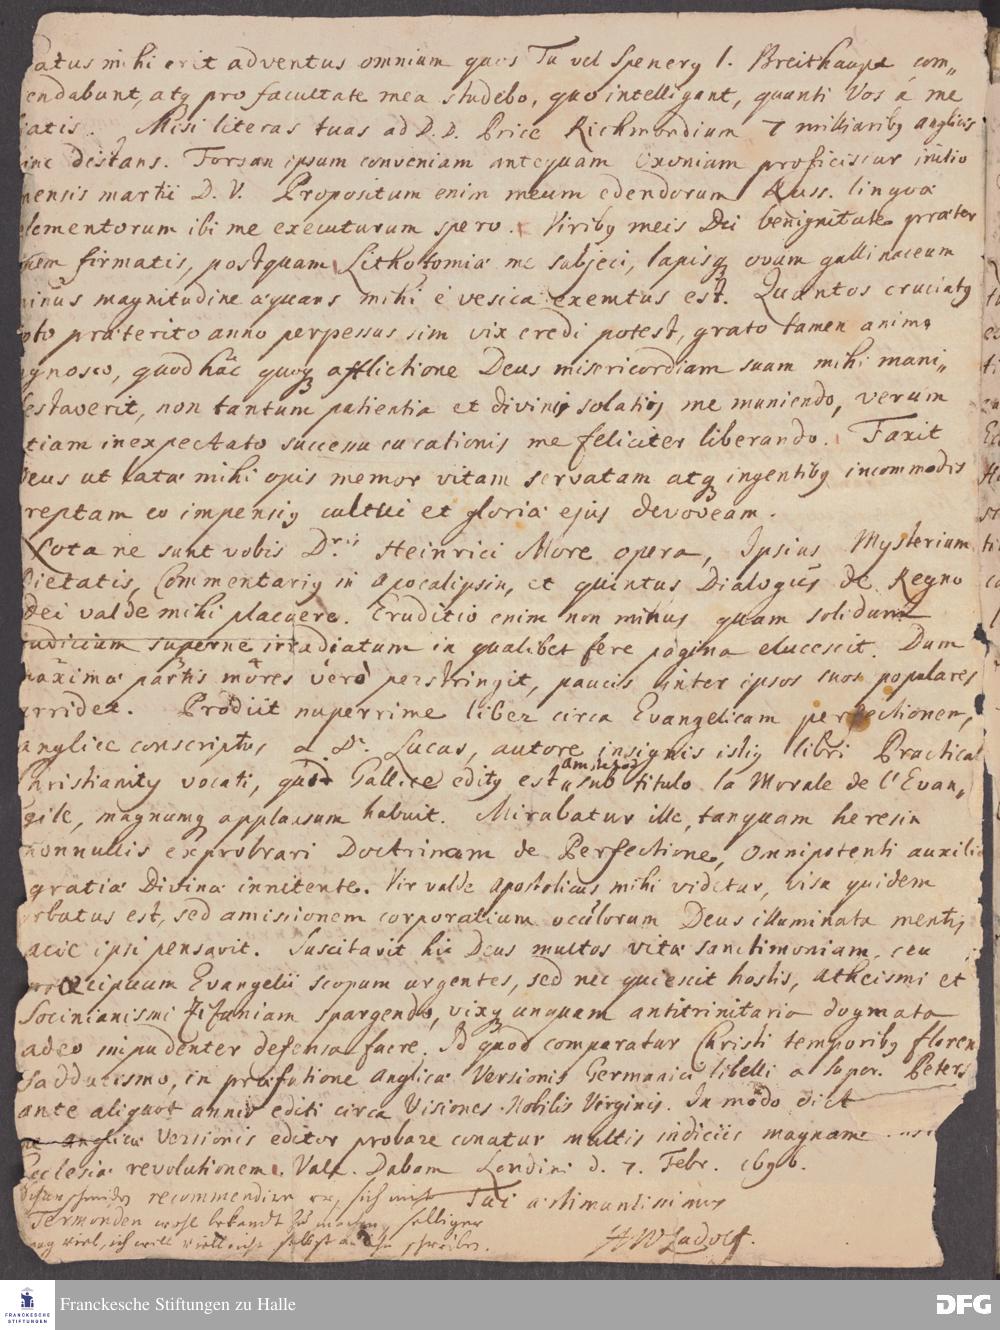 atus mihi erit adventus omnium quos Tu vel Spenerg l. Breithaupt com„
endabunt, atq pro facultate mea studebo, quo intelligant, quanti Vos á me
iatis. Misi literas tuas ad D. D. Price Richmondium 7 milliaribg Anglicis
inc destans. Forsan ipsum conveniam antequam Oxoniam proficiscar initio
mensis martii D. V. Propositum enim meum edendorum Russ. linguæ
elementorum ibi me executurum spero. Viribg meis Dei benignitate præter
firmatis, postquam Lithotomiæ me subjeci, lapisq ovum gallinaceum
minus magnitudine æquans mihi é vesica exemtus est. Quantos cruciatg
oto præterito anno perpessus sim vix credi potest, grato tamen animo
gnosco, quod hâc quoq afflictione Deus misericordiam suam mihi mani„
estaverit, non tantum patientia et divinis solatiis me muniendo, verum
tiam inexpectato successu me feliciter liberando. Faxit
Deus ut latæ mihi opis memor vitam servatam atq ingentibg incommodis
reptam eo impensig cultui et gloriæ ejus devoveam.
Nota ne sunt vobis D.ris Heinrici More opera, Ipsius Mysterium
Pietatis, Commentarig in Apocalipsin, et quintus Dialogus de Regno
Dei valde mihi placuere. Eruditio enim non minus quam solidum
judicium superne irradiatum in qualibet fere pagina elucescit. Dum
maximæ partis mores vero perstringit, paucis inter ipsos suos populares
arridet. Prodiit nuperrime liber circa Evangelicam perfectionem,
anglice conscriptus a Dr. Lucas, autore insignis istig libri Practical
Christianity vocati, qui Gallice editg est Amstelod sub titulo la Morale de l'Evan„
gile, magnumq applausum habuit. Mirabatur ille, tanquam heresin
nonnullis exprobrari Doctrinam de Perfectione, omnipotenti auxilio
gratiæ Divinæ innitente. Vir valde Apostolicus mihi videtur, visu quidem
orbatus est, sed amissionem corporalium oculorum Deus illuminata mentis
acie ipsi pensavit. Suscitavit hic Deus multos vitæ sanctimoniam, ceu
præcipuum Evangelii scopum urgentes, sed nec quiescit hostis, Atheismi et
Socinianismi Zizaniam spargendo, vixq unquam antitrinitaria dogmata
adeo impudenter defensa fuere. Id quod comparatur Christi temporibg floren
Sadducismo, in præfatione Anglicæ Versionis Germanici libelli a Super. Peters
ante aliquot annis editi circa Visiones Nobilis Virginis. In modo dict
anglicæ Versionis editor probare conatur multis indiciis magnam
Ecclesiæ revolutionem. Vale. Dabam Londini d. 7. Febr. 1696.
recommendiren sich nicht Tui æstimantissimus
Termonden wohl bekandt zu machen, selliger
viel, ich will vielleicht selbst an ihn schreiben. HWLudolf.
FRANCKESCHE STIFTUNGEN
Franckesche Stiftungen zu Halle
DFG